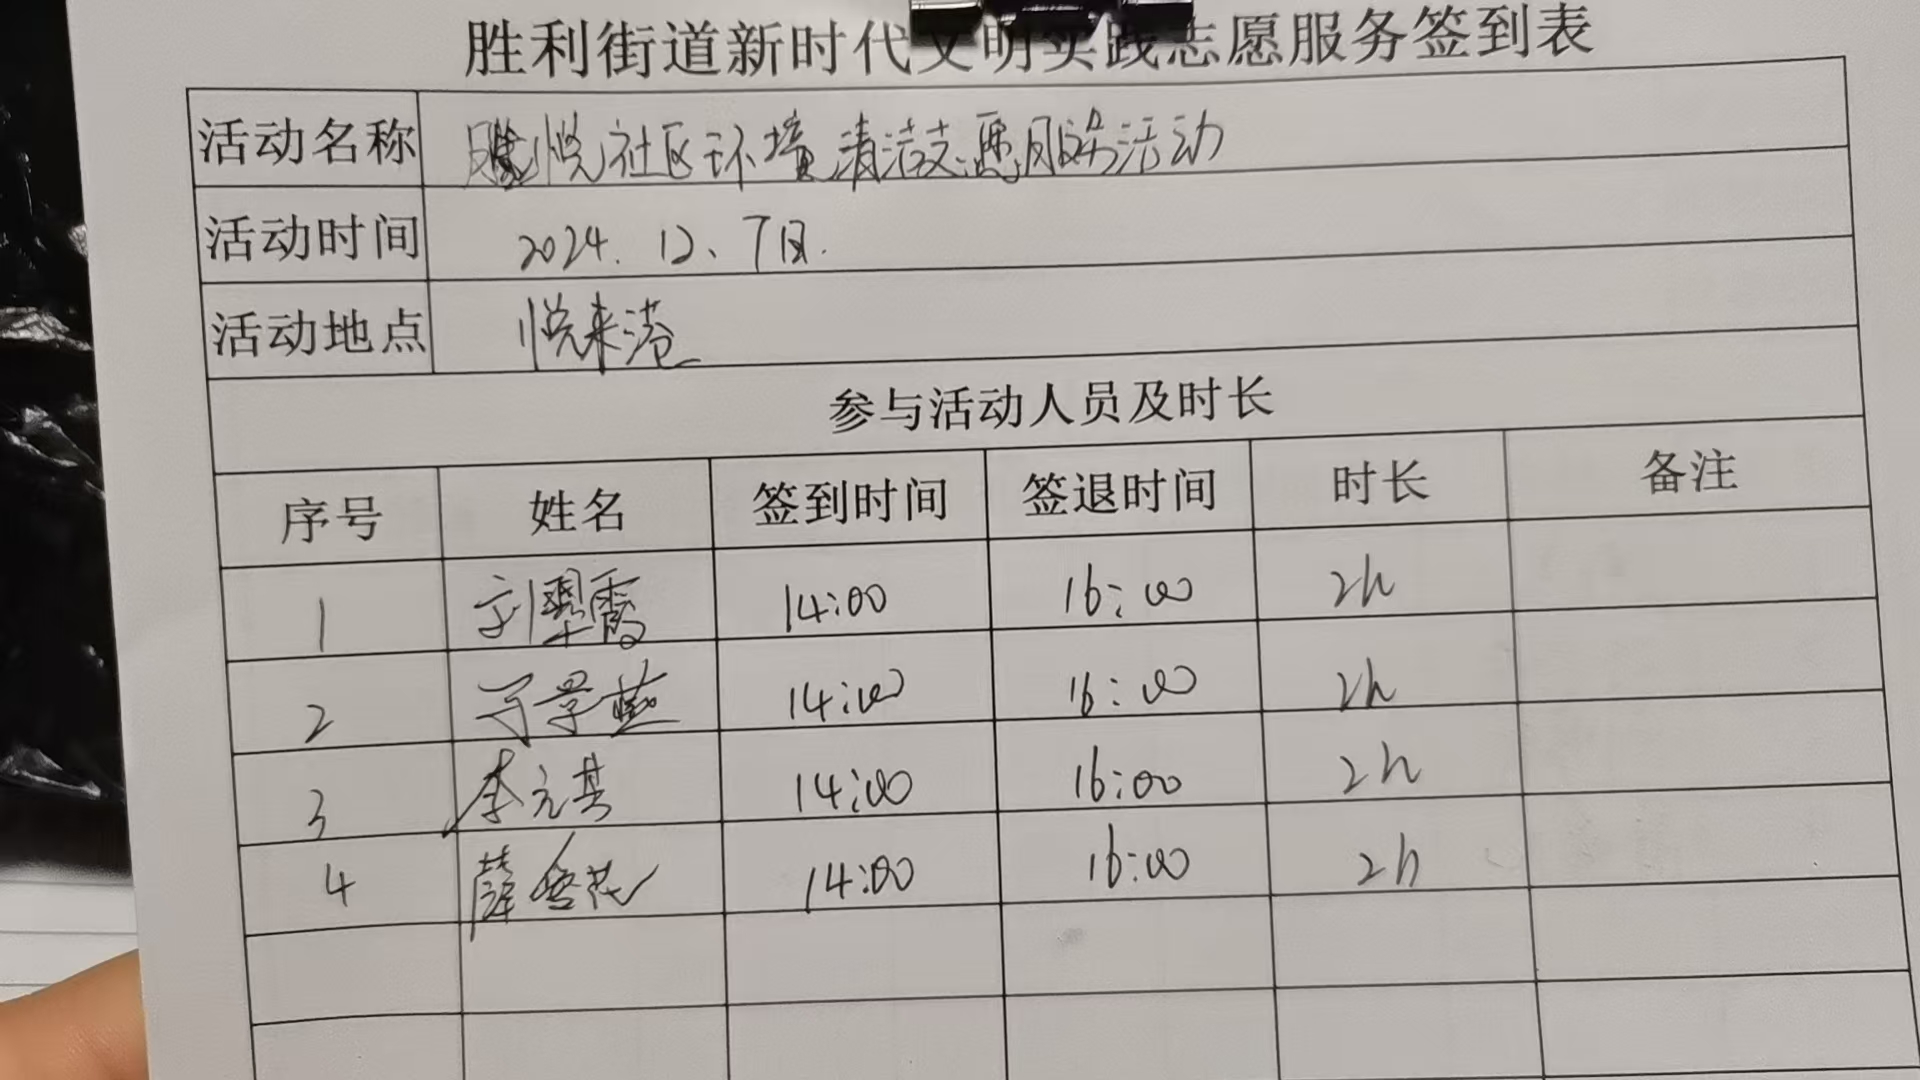 胜利街道新时代文明实践志愿服务签到表
活动名称 悦社区环境清洁志愿服务活动
活动时间 2024.12、7日.
活动地点 悦来港
参与活动人员及时长
序号 姓名 签到时间 签退时间 时长 备注
1 刘翠霞 14:00 16:00 2h
2 景燕 14:00 16:00 2h
3 李元其 14:00 16:00 2h
4 薛雪花 14:00 16:00 2h